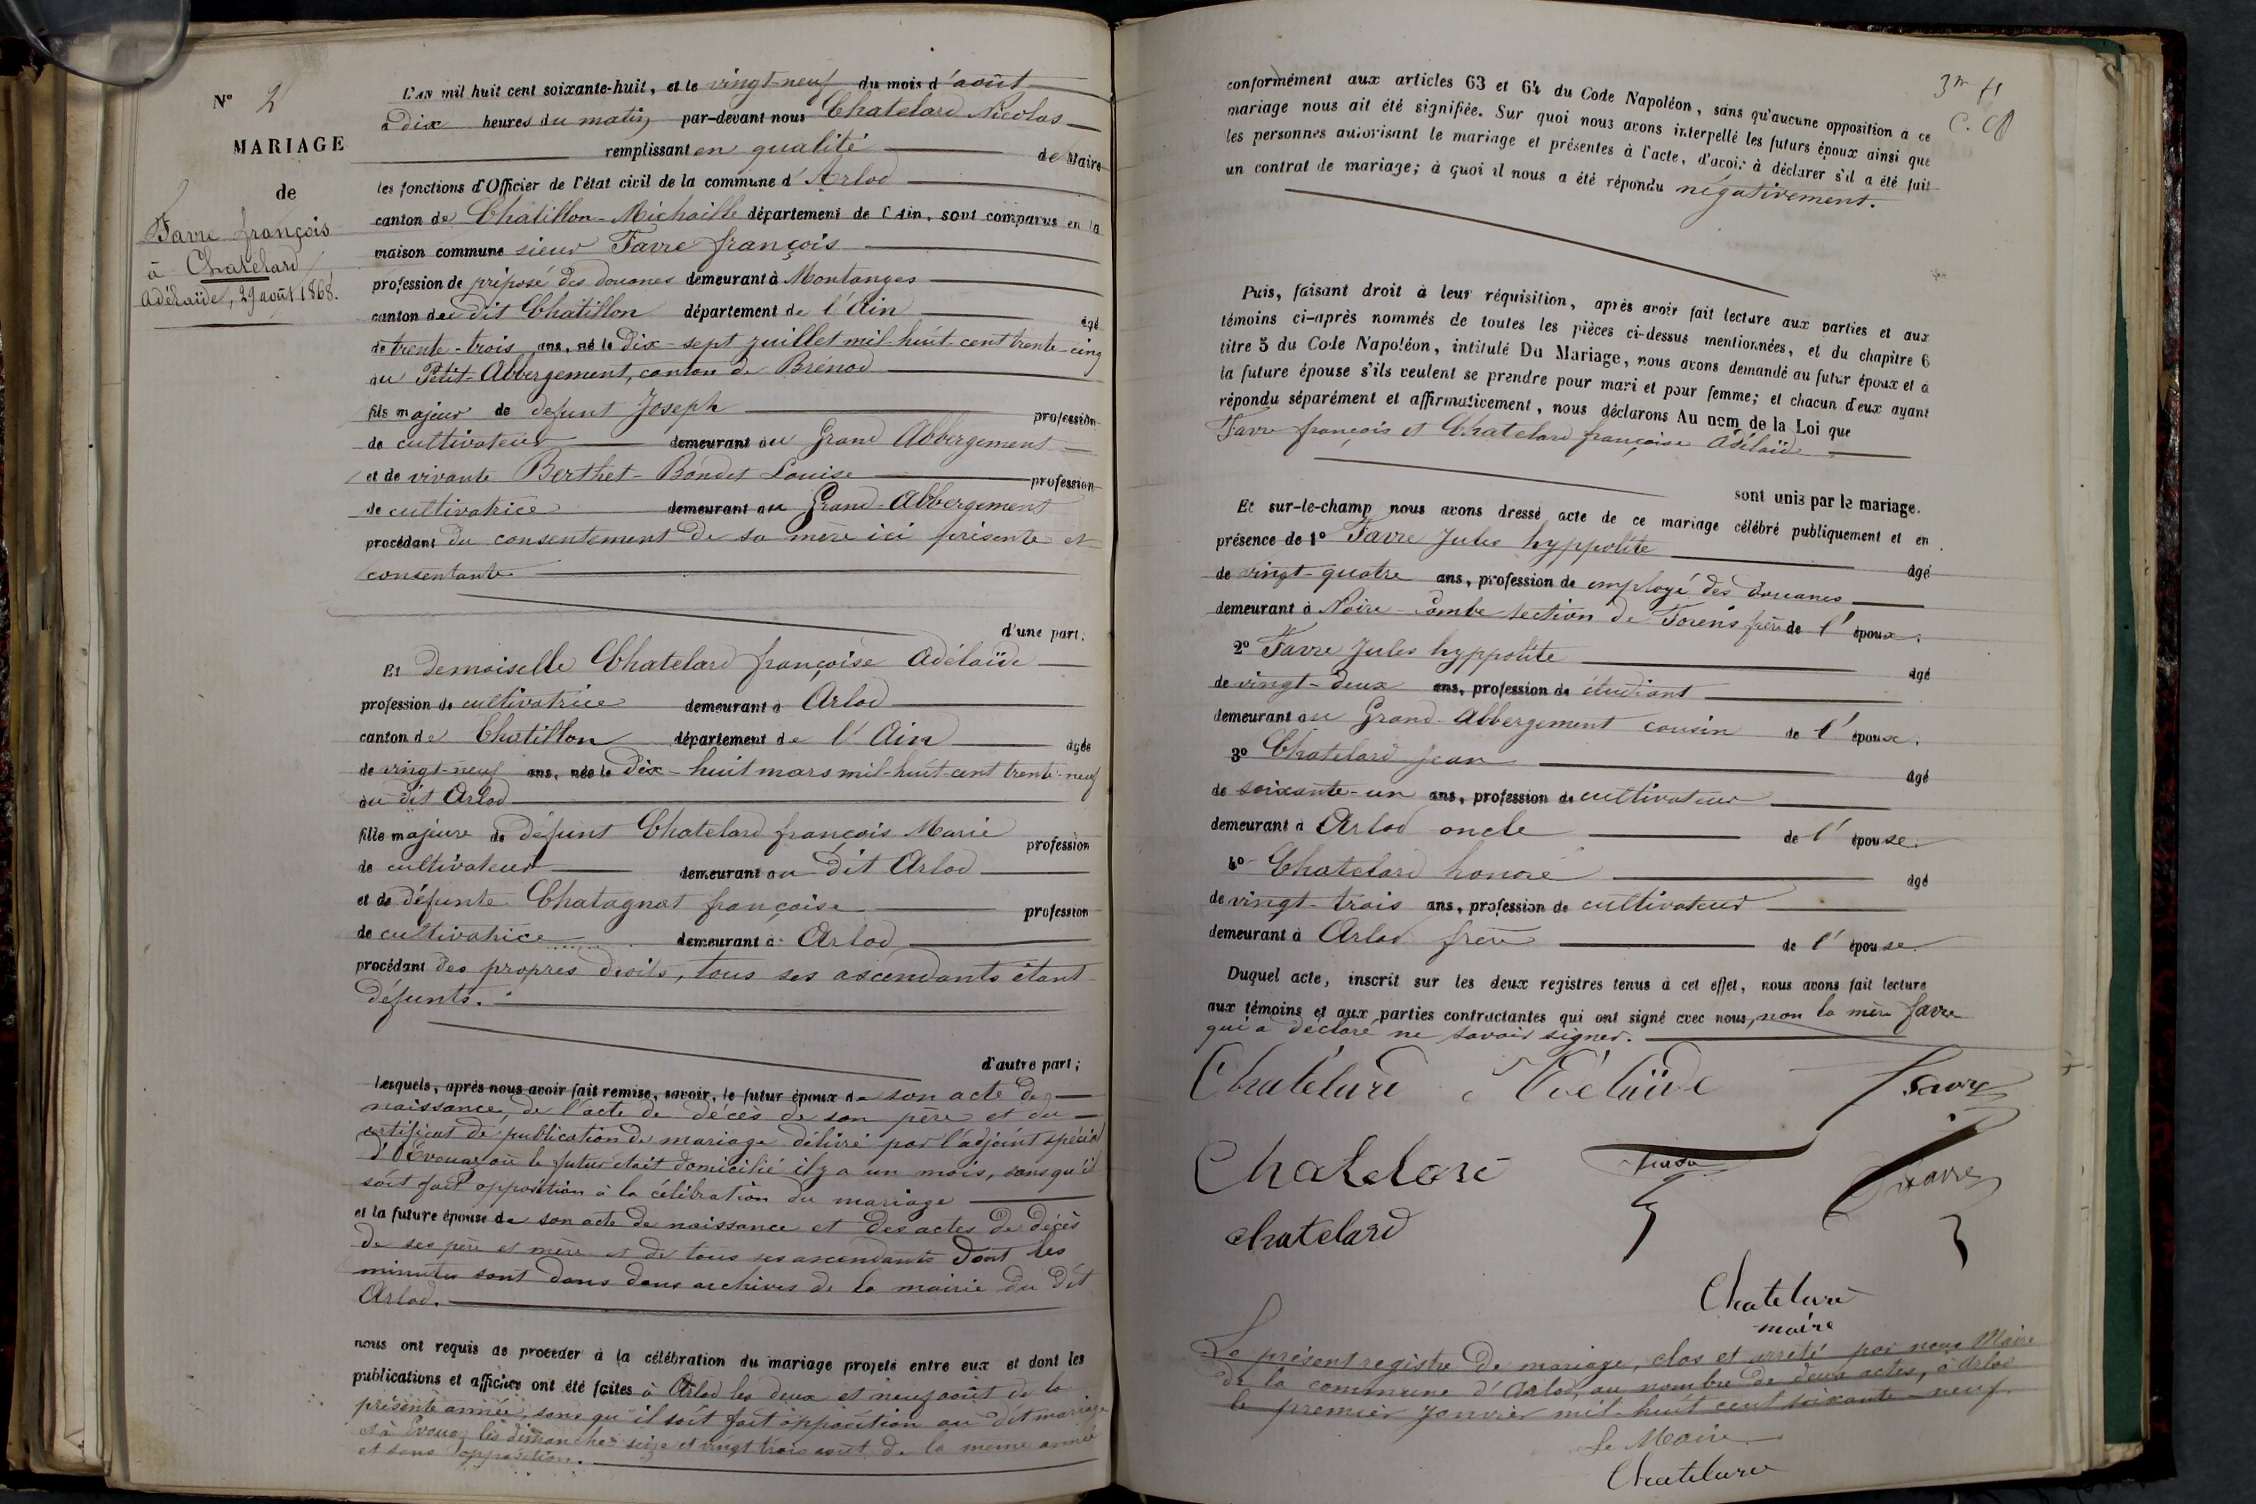 N° 2
MARIAGE
de
Favre françois
à Chatelard
Adélaïde, 29 août 1868.
L'an mil huit cent soixante-huit, et le vingt-neuf du mois d'août
à dix heures du matin par-devant nous Chatelard Nicolas
remplissant en qualité de Maire
les fonctions d'Officier de l'état civil de la commune d'Arlod
canton de Châtillon-Michaille département de l'Ain, sont comparus en la
maison commune sieur Favre françois
profession de préposé des douanes demeurant à Montanges
canton du dit Châtillon département de l'Ain âgé
de trente-trois ans, né le dix-sept juillet mil-huit-cent trente-cinq
au Petit-Abbergement, canton de Brénod
fils majeur de défunt Joseph profession
de cultivateur demeurant au Grand Abbergement
et de vivante Berthet-Bondet Louise profession
de cultivatrice demeurant au Grand-Abbergement
procédant du consentement de sa mère ici présente et
consentante
d'une part.
Et demoiselle Chatelard françoise Adélaïde
profession de cultivatrice demeurant à Arlod
canton de Chatillon département de l'Ain âgée
de vingt-neuf ans, née le dix-huit mars mil-huit-cent trente-neuf
au dit Arlod
fille majeure de défunt Chatelard françois Marie profession
de cultivateur demeurant au dit Arlod
et de défunte Chatagnat françoise profession
de cultivatrice demeurant à Arlod
procédant des propres droits, tous ses ascendants étant
défunts.
d'autre part;
Lesquels, après nous avoir fait remise, savoir, le futur époux de son acte de
naissance, de l'acte de décès de son père et du
certificat de publication de mariage délivré par l'adjoint spécial
d'Évouaz où le futur était domicilié il y a un mois, sans qu'il
soit fait opposition à la célébration du mariage
et la future épouse de son acte de naissance et des actes de décès
de ses père et mère et de tous ses ascendants dont les
minutes sont dans dans archives de la mairie du dit
Arlod.
nous ont requis de procéder à la célébration du mariage projeté entre eux et dont les
publications et affiches ont été faites à Arlod les deux et neuf août de la
présente année, sans qu'il soit fait opposition au dit mariage
et à Évouaz les dimanches seize et vingt trois août de la même année
et sans opposition.
3m f1
conformément aux articles 63 et 64 du Code Napoléon, sans qu'aucune opposition à ce
mariage nous ait été signifiée. Sur quoi nous avons interpellé les futurs époux ainsi que
les personnes autorisant le mariage et présentes à l'acte, d'avoir à déclarer s'il a été fait
un contrat de mariage; à quoi il nous a été répondu négativement.
Puis, faisant droit à leur réquisition, après avoir fait lecture aux parties et aux
témoins ci-après nommés de toutes les pièces ci-dessus mentionnées, et du chapitre 6
titre 5 du Code Napoléon, intitulé Du Mariage, nous avons demandé au futur époux et à
la future épouse s'ils veulent se prendre pour mari et pour femme; et chacun d'eux ayant
répondu séparément et affirmativement, nous déclarons Au nom de la Loi que
Favre françois et Chatelard françoise Adélaïde
sont unis par le mariage.
Et sur-le-champ nous avons dressé acte de ce mariage célébré publiquement et en
présence de 1° Favre Jules hyppolite âgé
de vingt-quatre ans, profession de employé des douanes
demeurant à Noire-Combe section de Forens frère de l'époux.
2° Favre Jules hyppolite âgé
de vingt-deux ans, profession de étudiant
demeurant au Grand-Abbergement cousin de l'époux.
3° Chatelard Jean âgé
de soixante-un ans, profession de cultivateur
demeurant à Arlod oncle de l'épouse.
4° Chatelard honoré âgé
de vingt-trois ans, profession de cultivateur
demeurant à Arlod frère de l'épouse.
Duquel acte, inscrit sur les deux registres tenus à cet effet, nous avons fait lecture
aux témoins et aux parties contractantes qui ont signé avec nous, non la mère favre
qui a déclaré ne savoir signer.
Chatelard Adélaïde Favre
Chatelard Favre
chatelard
Chatelard
maire
Le présent registre de mariage, clos et arrêté par nous Maire
de la commune d'Arlod, au nombre de deux actes, à Arlod
le premier janvier mil-huit cent soixante-neuf.
Le Maire
Chatelard